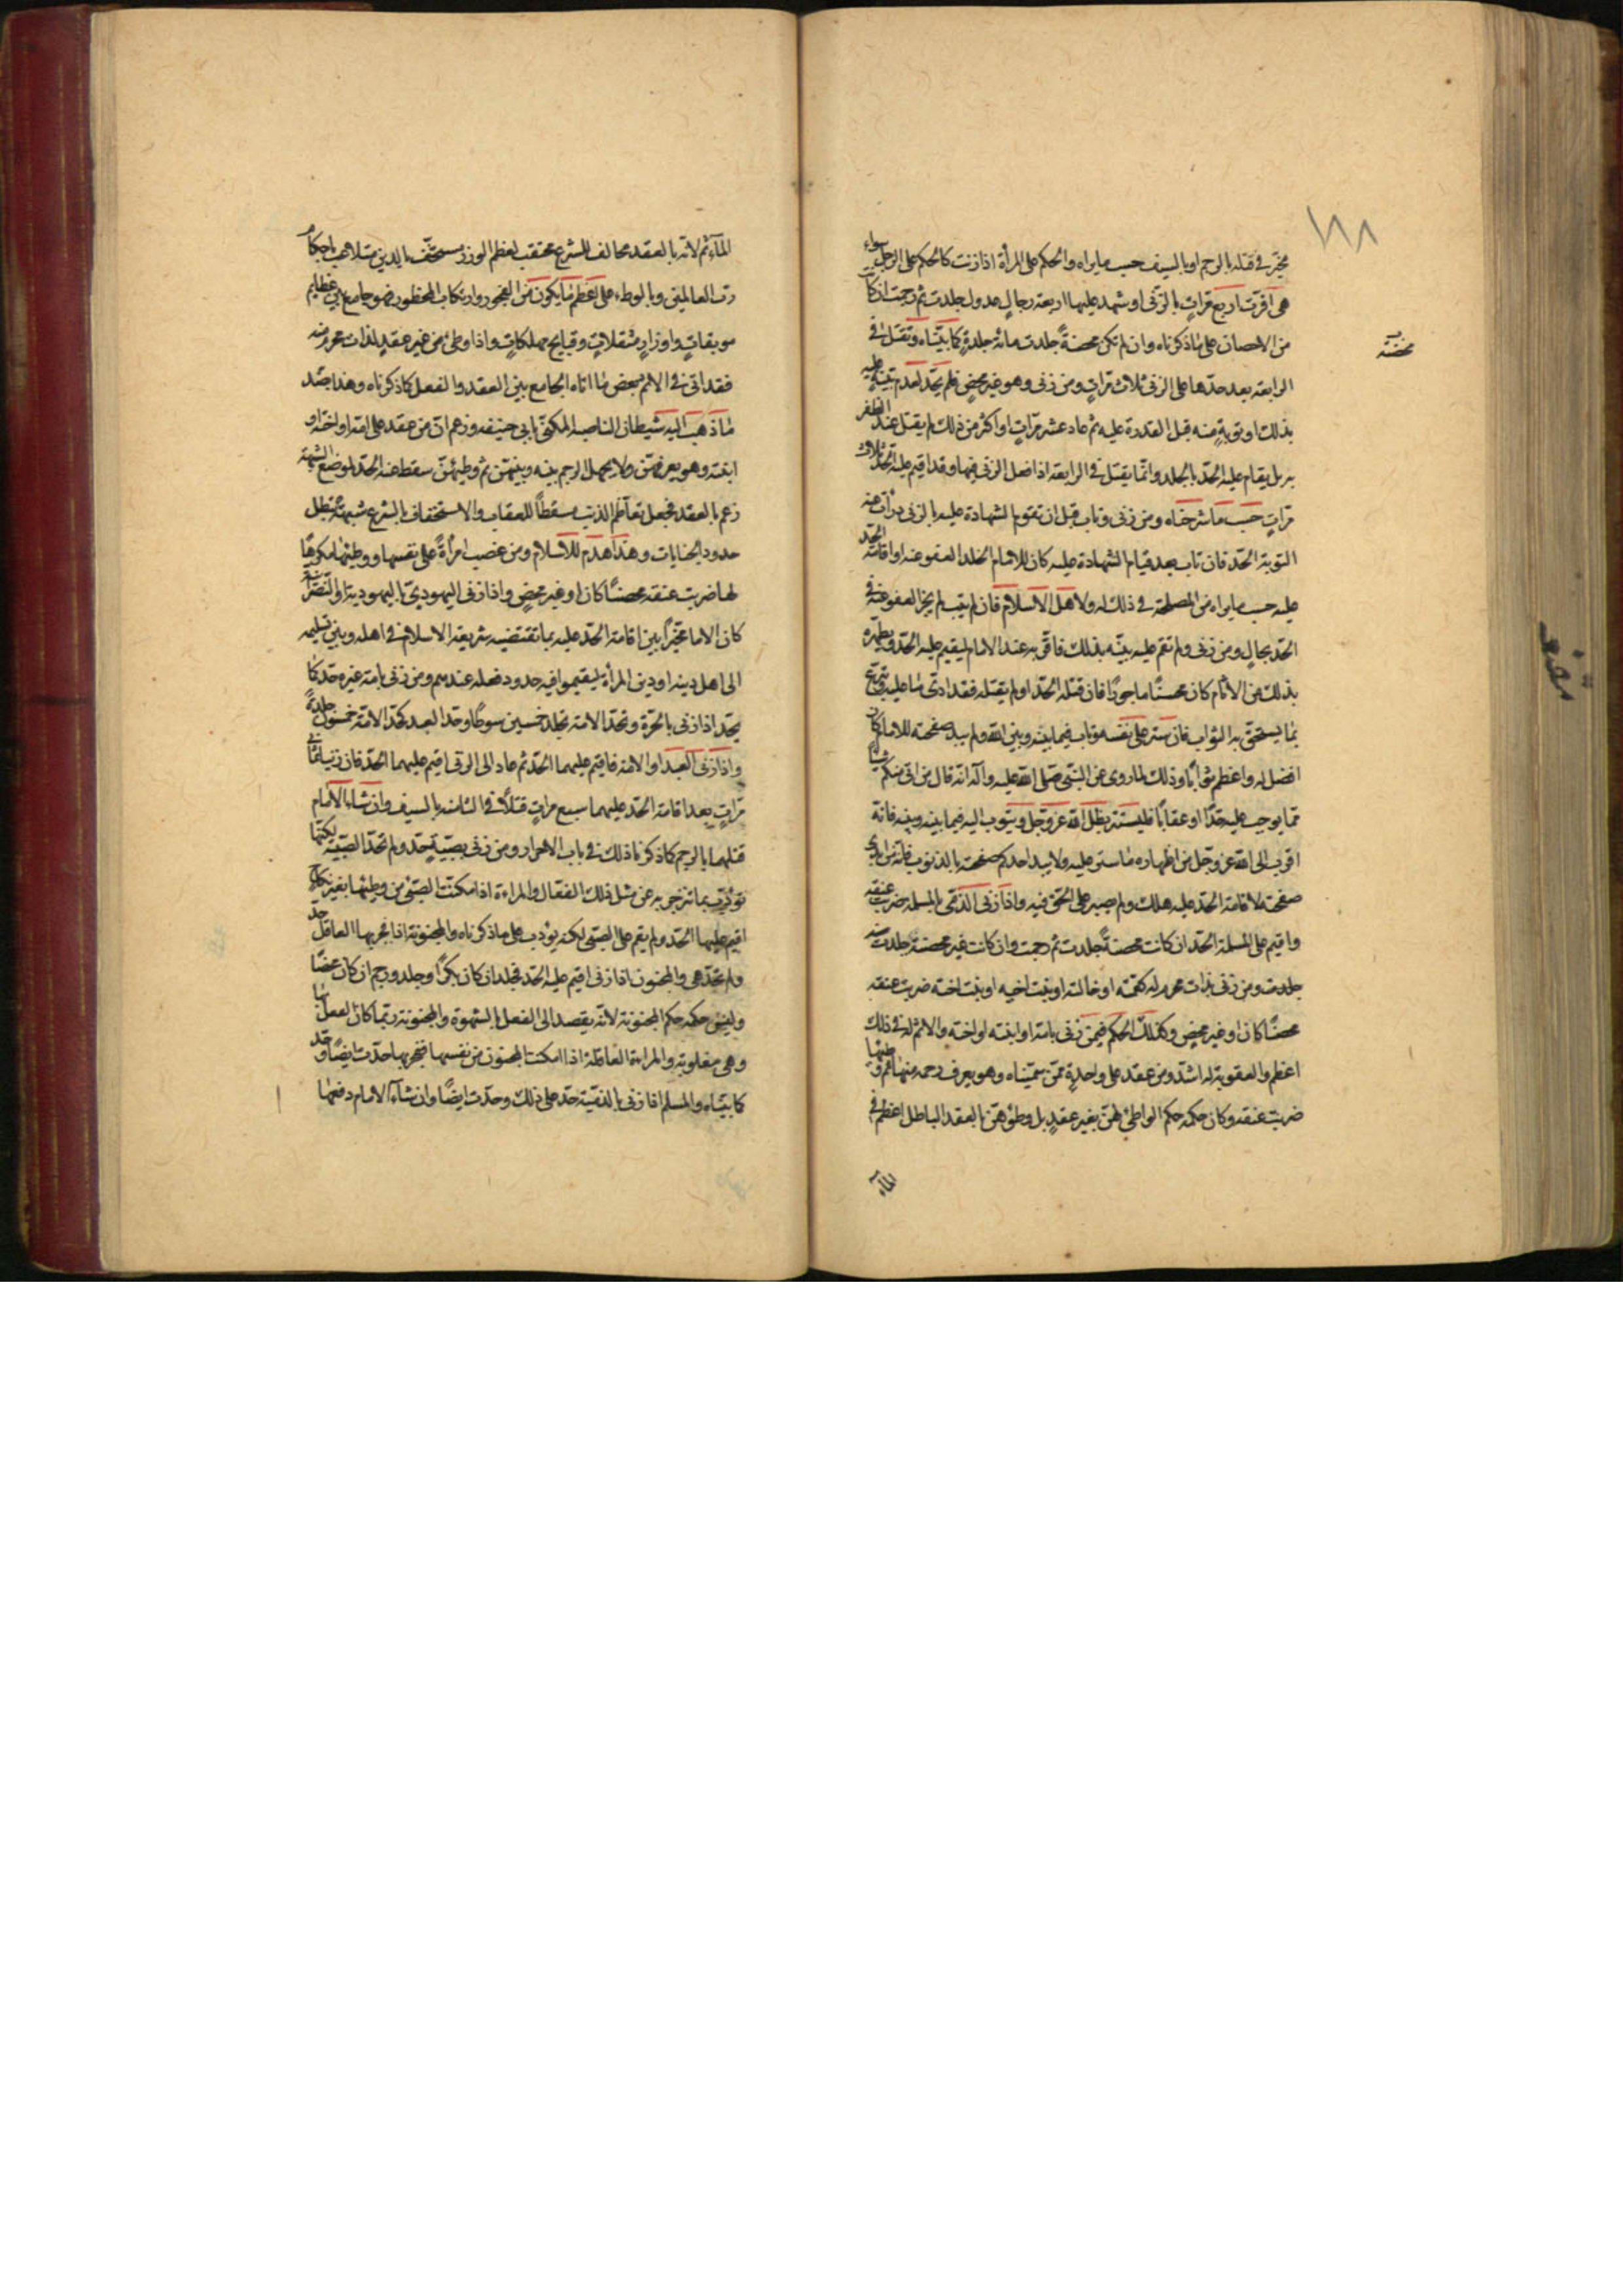 ١٨٨
مخير في قتله بالرجم او بالسيف حسب ما يراه والحكم على المرأة اذا زنت كالحكم على الرجل سواء
هي اقرّت اربع مرات بالزنى او شهد عليها اربعة رجال عدول جلدت ثم رجمت ان كانت
من الاحصان على ما ذكرناه وان لم تكن محصنةً جلدت مائة جلدةٍ كما بيّنّاه وتقتل في
محصنة
الرابعة بعد حدّها على الزنى ثلاث مراتٍ ومن زنى وهو غير محصنٍ فلم يحدّ لعدم بيّنةٍ عليه
بذلك او توبةٍ منه قبل القدرة عليه ثم عاد عشر مراتٍ او اكثر من ذلك لم يقتل عند الظفر
به بل يقام عليه الحدّ بالجلد وانما يقتل في الرابعة اذا فعل الزنى فيها وقد اقيم عليه الحدّ ثلاث
مراتٍ حسب ما شرحناه ومن زنى وتاب قبل ان تقوم الشهادة عليه بالزنى درأت عنه
التوبة الحدّ فان تاب بعد قيام الشهادة عليه كان للامام العفو عنه او اقامة الحدّ
عليه حسب ما يراه من المصلحة في ذلك له ولاهل الاسلام فان لم يتب لم يجز العفو عنه في
الحدّ بحالٍ ومن زنى ولم تقم عليه بيّنة بذلك فاقرّ به عند الامام ليقيم عليه الحدّ ويطهّره
بذلك من الآثام كان محسنًا ماجورًا فان قتله الحدّ او لم يقتله فقد ادّى ما عليه
بما يستحق به الثواب فان ستر على نفسه وتاب فيما بينه وبين الله ولم يبد صفحته للامام كان
افضل له واعظم ثوابًا وذلك لما روى عن النبي صلى الله عليه وآله انه قال من اتى منكم شيئًا
مما يوجب عليه حدًّا او عقابًا فليستتر بظل الله عز وجل ويتوب اليه فيما بينه وبينه فانه
اقرب الى الله عز وجل من اظهاره ما ستر عليه ولا يبد احدكم صفحته بالذنوب فانه من ابدى
صفحته لاقامة الحدّ عليه هلك ولم يصبر على الحق فيه واذا زنى الذمّي بالمسلمة ضربت عنقه
واقيم على المسلمة الحدّ ان كانت محصنةً جلدت ثم رجمت وان كانت غير محصنة جلدت
جلدت ومن زنى بذات محرم له كعمّته او خالته او بنت اخيه او بنت اخته ضربت عنقه
محصنًا كان او غير محصنٍ وكذلك الحكم فيمن زنى بامّه او ابنته او اخته والاثم له في ذلك
اعظم والعقوبة له اشدّ ومن عقد على واحدةٍ ممّن سمّيناه وهو يعرف رحمه منها ثم وطئها
ضربت عنقه وكان حكمه حكم الواطئ لهنّ بغير عقدٍ بل وطؤهنّ بالعقد الباطل اعظم في
المآ
المآثم لانه بالعقد مخالف للشرع محتقب لعظيم الوزر مستخفّ بالدين متلاعب باحكام
رب العالمين وبالوطء على اعظم ما يكون من الفجور وارتكاب المحظور فهو جامع بين عظايم
موبقاتٍ واوزارٍ مثقلاتٍ وقبايح مهلكاتٍ واذا وطئ من غير عقدٍ لذات محرم منه
فقد اتى في الاثم ببعض ما اتاه الجامع بين العقد والفعل كما ذكرناه وهذا ضد
ما ذهب اليه شيطان الناصبه المكنّى بابي حنيفه وزعم ان من عقد على امّه او اخته او
ابنته وهو يعرفهنّ ولا يجهل الرحم بينه وبينهنّ ثم وطيهنّ سقط عنه الحدّ لموضع الشبهة
زعم بالعقد فجعل تعاظم الذنب مسقطًا للعقاب والاستخفاف بالشرع شبهةً تبطل
حدود الجنايات وهذا هدم للاسلام ومن غصب امرأةً على نفسها ووطئها مكرهًا
لها ضربت عنقه محصنًا كان او غير محصنٍ واذا زنى اليهودي باليهودية او النصرانية
كان الامام مخيّرًا بين اقامة الحدّ عليه بما تقتضيه شريعة الاسلام في اهله وبين تسليمه
الى اهل دينه او دين المرأة ليقيموا فيه حدود فعله عندهم ومن زنى بامة غيره حدّ كما
يحدّ اذا زنى بالحرّة وتحدّ الامة تجلد خمسين سوطًا وحدّ العبد كحدّ الامة خمسون جلدةً
واذا زنى العبد او الامة فاقيم عليهما الحدّ ثم عاد الى الزنى اقيم عليهما الحدّ فان زنيا ثماني
مراتٍ بعد اقامة الحدّ عليهما سبع مراتٍ قتلا في الثامنة بالسيف وان شاء الامام
قتلهما بالرجم كما ذكرنا ذلك في باب الاحرار ومن زنى بصبيّةٍ حدّ ولم تحدّ الصبيّة لكنّها
تؤدّب بما تنزجر به عن مثل ذلك الفعال والمراءة اذا مكّنت الصبيّ من وطئها بغير نكاح
اقيم عليها الحدّ ولم يقم على الصبيّ حد لكنه يؤدب على ما ذكرناه والمجنونة اذا فجر بها العاقل حد
ولم تحدّ هي والمجنون اذا زنى اقيم عليه الحدّ فجلد ان كان بكرًا وجلد ورجم ان كان محصنًا
وليس حكمه حكم المجنونة لانّه يقصد الى الفعل بالشهوة والمجنونة ربّما كان الفعل بها
وهي مغلوبة والمراءة العاقلة اذا امكنت المجنون من نفسها ففجر بها حدّت ايضًا وقد
كما بيّنّاه والمسلم اذا زنى بالذمّية حدّ على ذلك وحدّت ايضًا وان شآء الامام دفعها